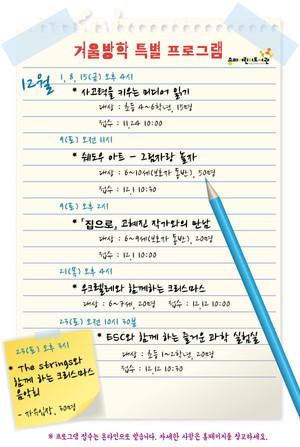 겨울방학 특별 프로그램
12월
1, 8, 15(금) 오후 4시
* 사고력을 키우는 미디어 읽기
대상 : 초등 4~6학년, 15명
접수 : 11.24 10:00
9(토) 오전 11시
* 쉐도우 아트 - 그림자랑 놀자
대상 : 6~10세(보호자 동반), 50명
접수 : 12.1 10:30
9(토) 오후 2시
* 「집으로」 고혜진 작가와의 만남
대상 : 6~9세(보호자 동반), 20명
접수 : 12.1 10:00
21(목) 오후 4시
* 우크렐레와 함께하는 크리스마스
대상 : 6~7세, 20명 접수 : 12.12 10:00
23(토) 오전 10시 30분
* ESC와 함께 하는 즐거운 과학 실험실
대상 : 초등 1~2학년, 20명
접수 : 12.12 10:30
23(토) 오후 3시
* The strings와
함께 하는 크리스마스
음악회
- 자유입장, 30명
※ 프로그램 접수는 온라인으로 받습니다. 자세한 사항은 홈페이지를 참고하세요.